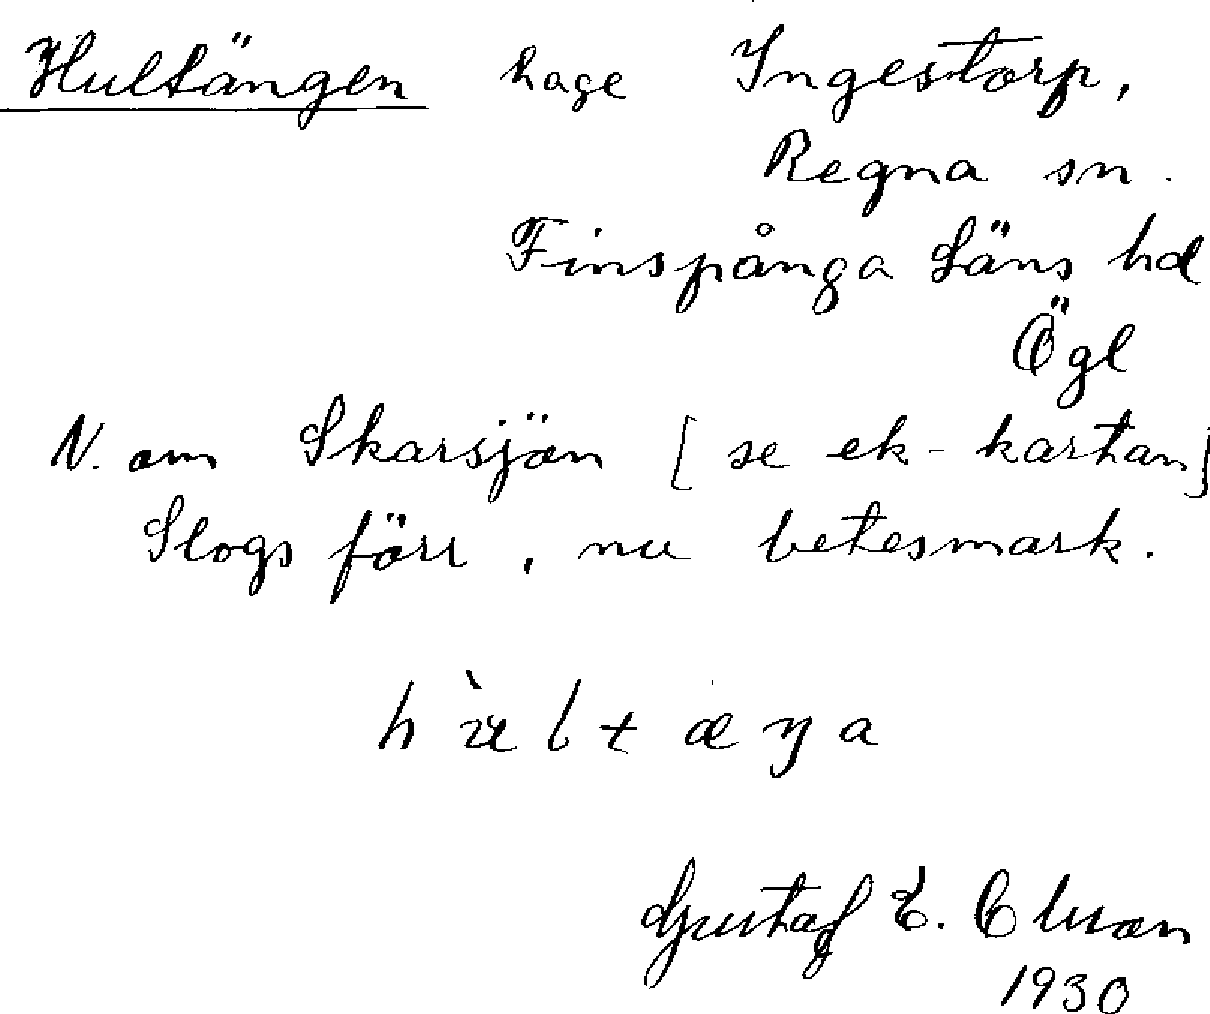 Hultängen hage Ingestorp,
Regna sn.
Finspånga läns hd
Ögl
N. om Skarsjön [se ek-kartan]
Slogs förr, nu betesmark.
Gustaf E.
1930